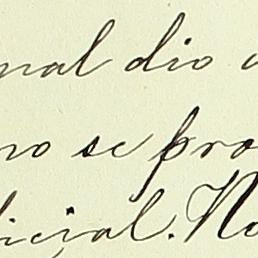 nal dio a
no se pro
icial. No